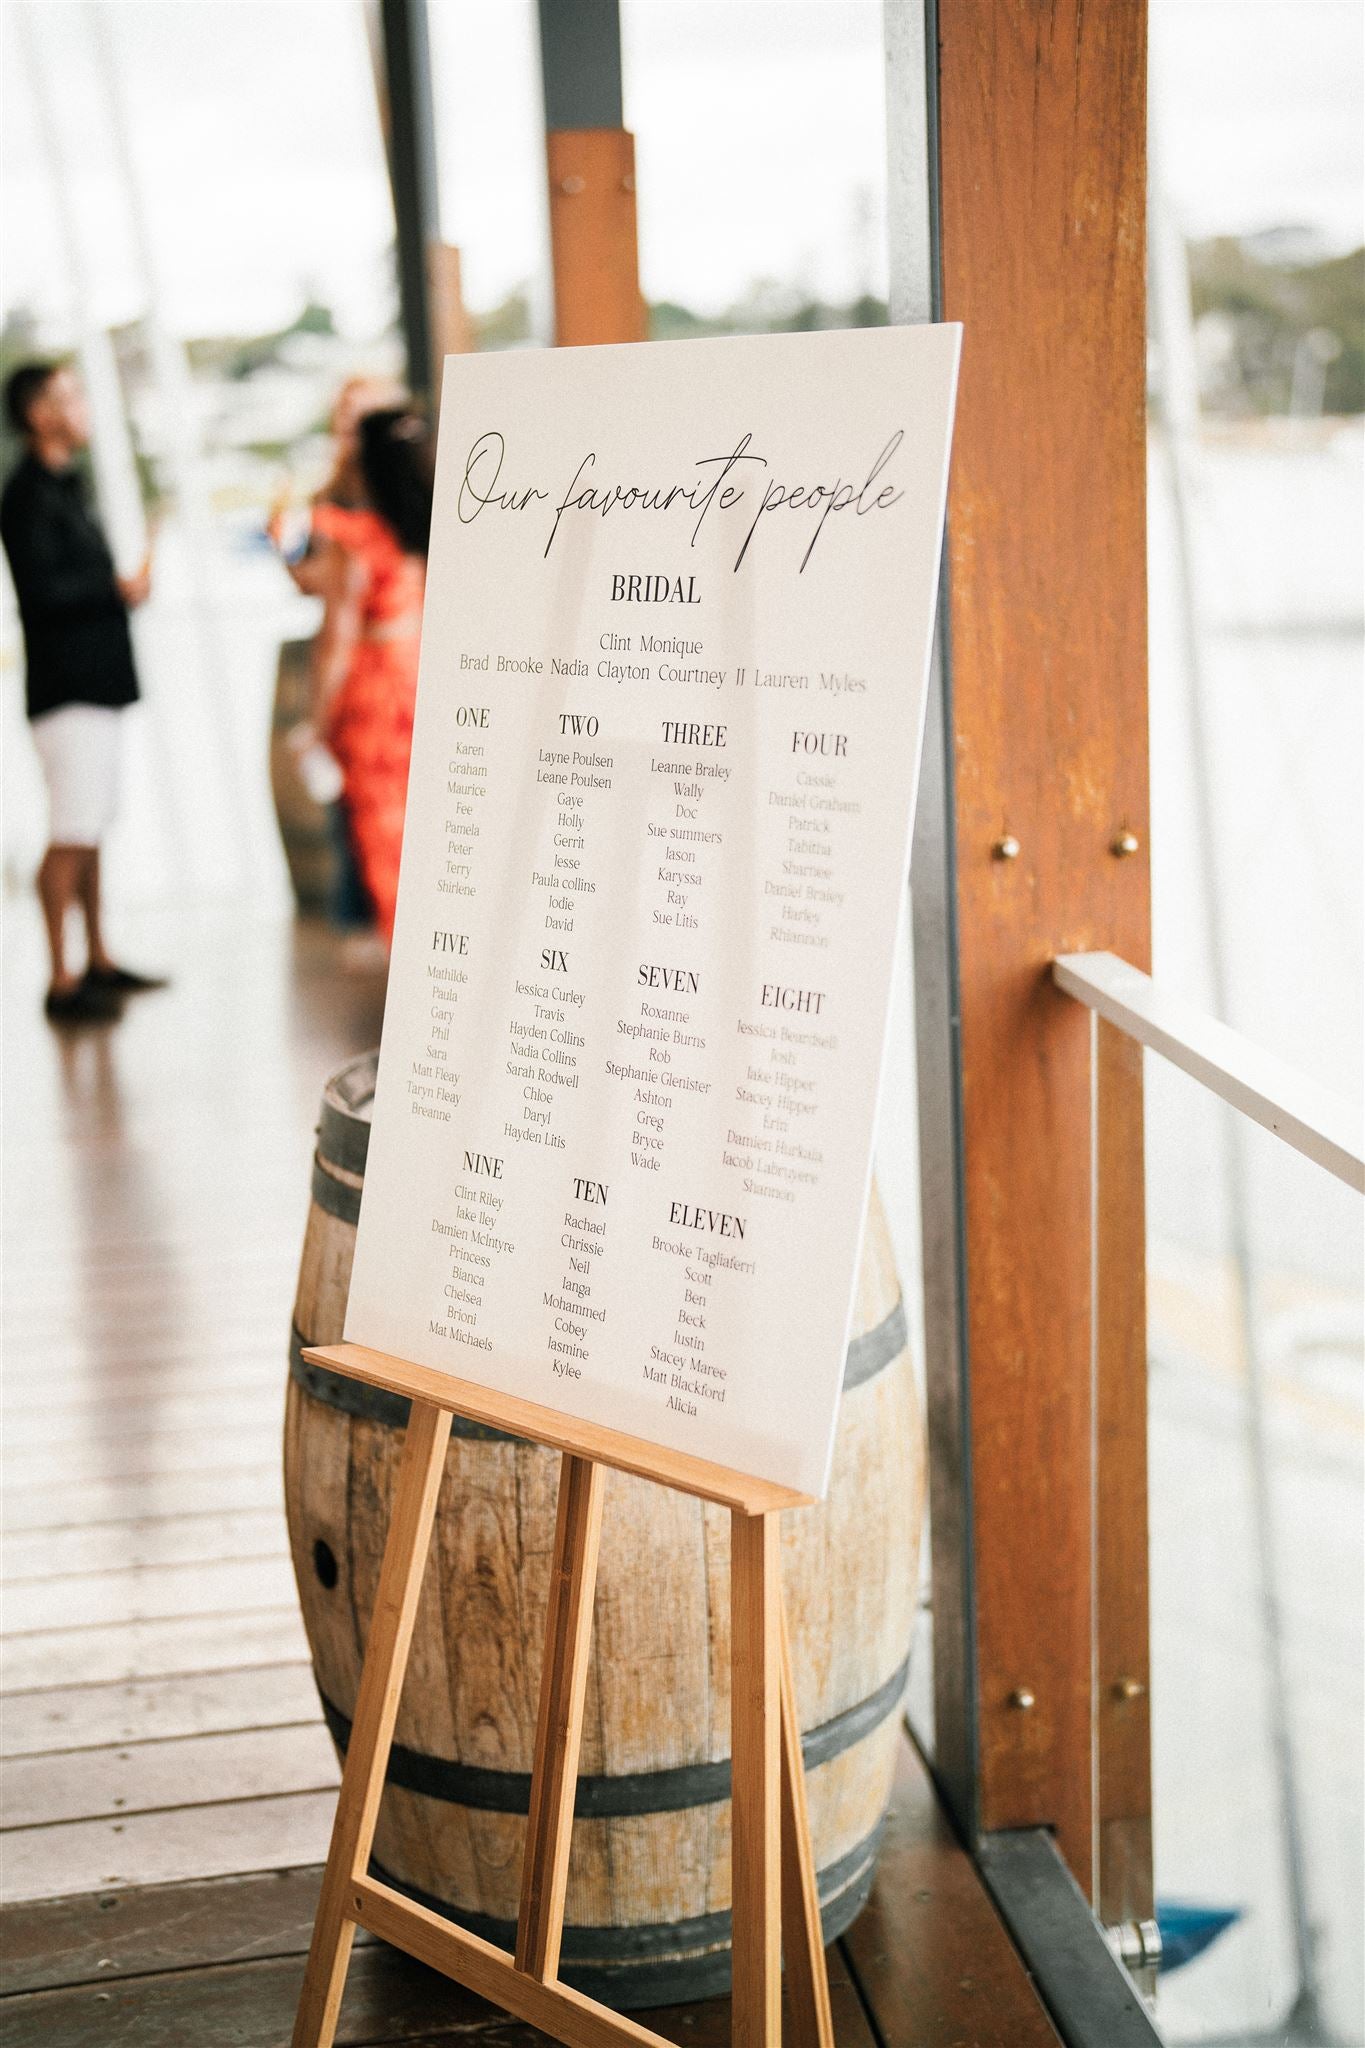 Our favourite people
BRIDAL
Clint Monique
Brad Brooke Nadia Clayton Courtney JJ Lauren Myles
ONE
Karen
Graham
Maurice
Fee
Pamela
Peter
Terry
Shirlene
TWO
Layne Poulsen
Leane Poulsen
Gaye
Holly
Gerrit
Jesse
Paula collins
Jodie
David
THREE
Leanne Braley
Wally
Doc
Sue summers
Jason
Karyssa
Ray
Sue Litis
FOUR
Cassie
Daniel Graham
Patrick
Tabitha
Sharnee
Daniel Braley
Harley
Rhiannon
FIVE
Mathilde
Paula
Gary
Phil
Sara
Matt Fleay
Taryn Fleay
Breanne
SIX
Jessica Curley
Travis
Hayden Collins
Nadia Collins
Sarah Rodwell
Chloe
Daryl
Hayden Litis
SEVEN
Roxanne
Stephanie Burns
Rob
Stephanie Glenister
Ashton
Greg
Bryce
Wade
EIGHT
Jessica Beardsell
Josh
Jake Hipper
Stacey Hipper
Erin
Damien Hurkala
Jacob Labruyere
Shannon
NINE
Clint Riley
Jake Iley
Damien McIntyre
Princess
Bianca
Chelsea
Brioni
Mat Michaels
TEN
Rachael
Chrissie
Neil
Janga
Mohammed
Cobey
Jasmine
Kylee
ELEVEN
Brooke Tagliaferri
Scott
Ben
Beck
Justin
Stacey Maree
Matt Blackford
Alicia